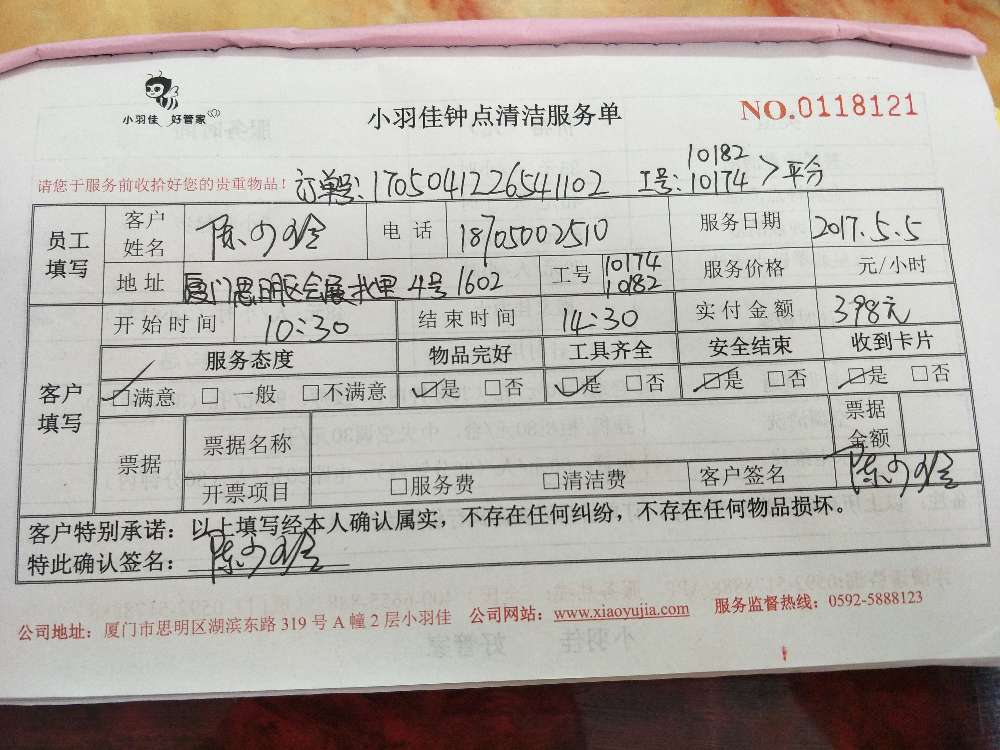 小羽佳 好管家
小羽佳钟点清洁服务单
NO.0118121
请您于服务前收拾好您的贵重物品！ 订单号：1705041226541102 工号：10182 10174 > 平分
员工填写 客户姓名 陈 电话 18705002510 服务日期 2017.5.5
地址 厦门思明区会展 4号1602 工号 10174 10182 服务价格 元/小时
客户填写 开始时间 10:30 结束时间 14:30 实付金额 398元
服务态度 物品完好 工具齐全 安全结束 收到卡片
☑满意 □一般 □不满意 ☑是 □否 ☑是 □否 ☑是 □否 ☑是 □否
票据 票据名称 票据金额
开票项目 □服务费 □清洁费 客户签名 陈
客户特别承诺：以上填写经本人确认属实，不存在任何纠纷，不存在任何物品损坏。
特此确认签名：陈
公司地址：厦门市思明区湖滨东路 319 号 A 幢 2 层小羽佳 公司网站：www.xiaoyujia.com 服务监督热线：0592-5888123